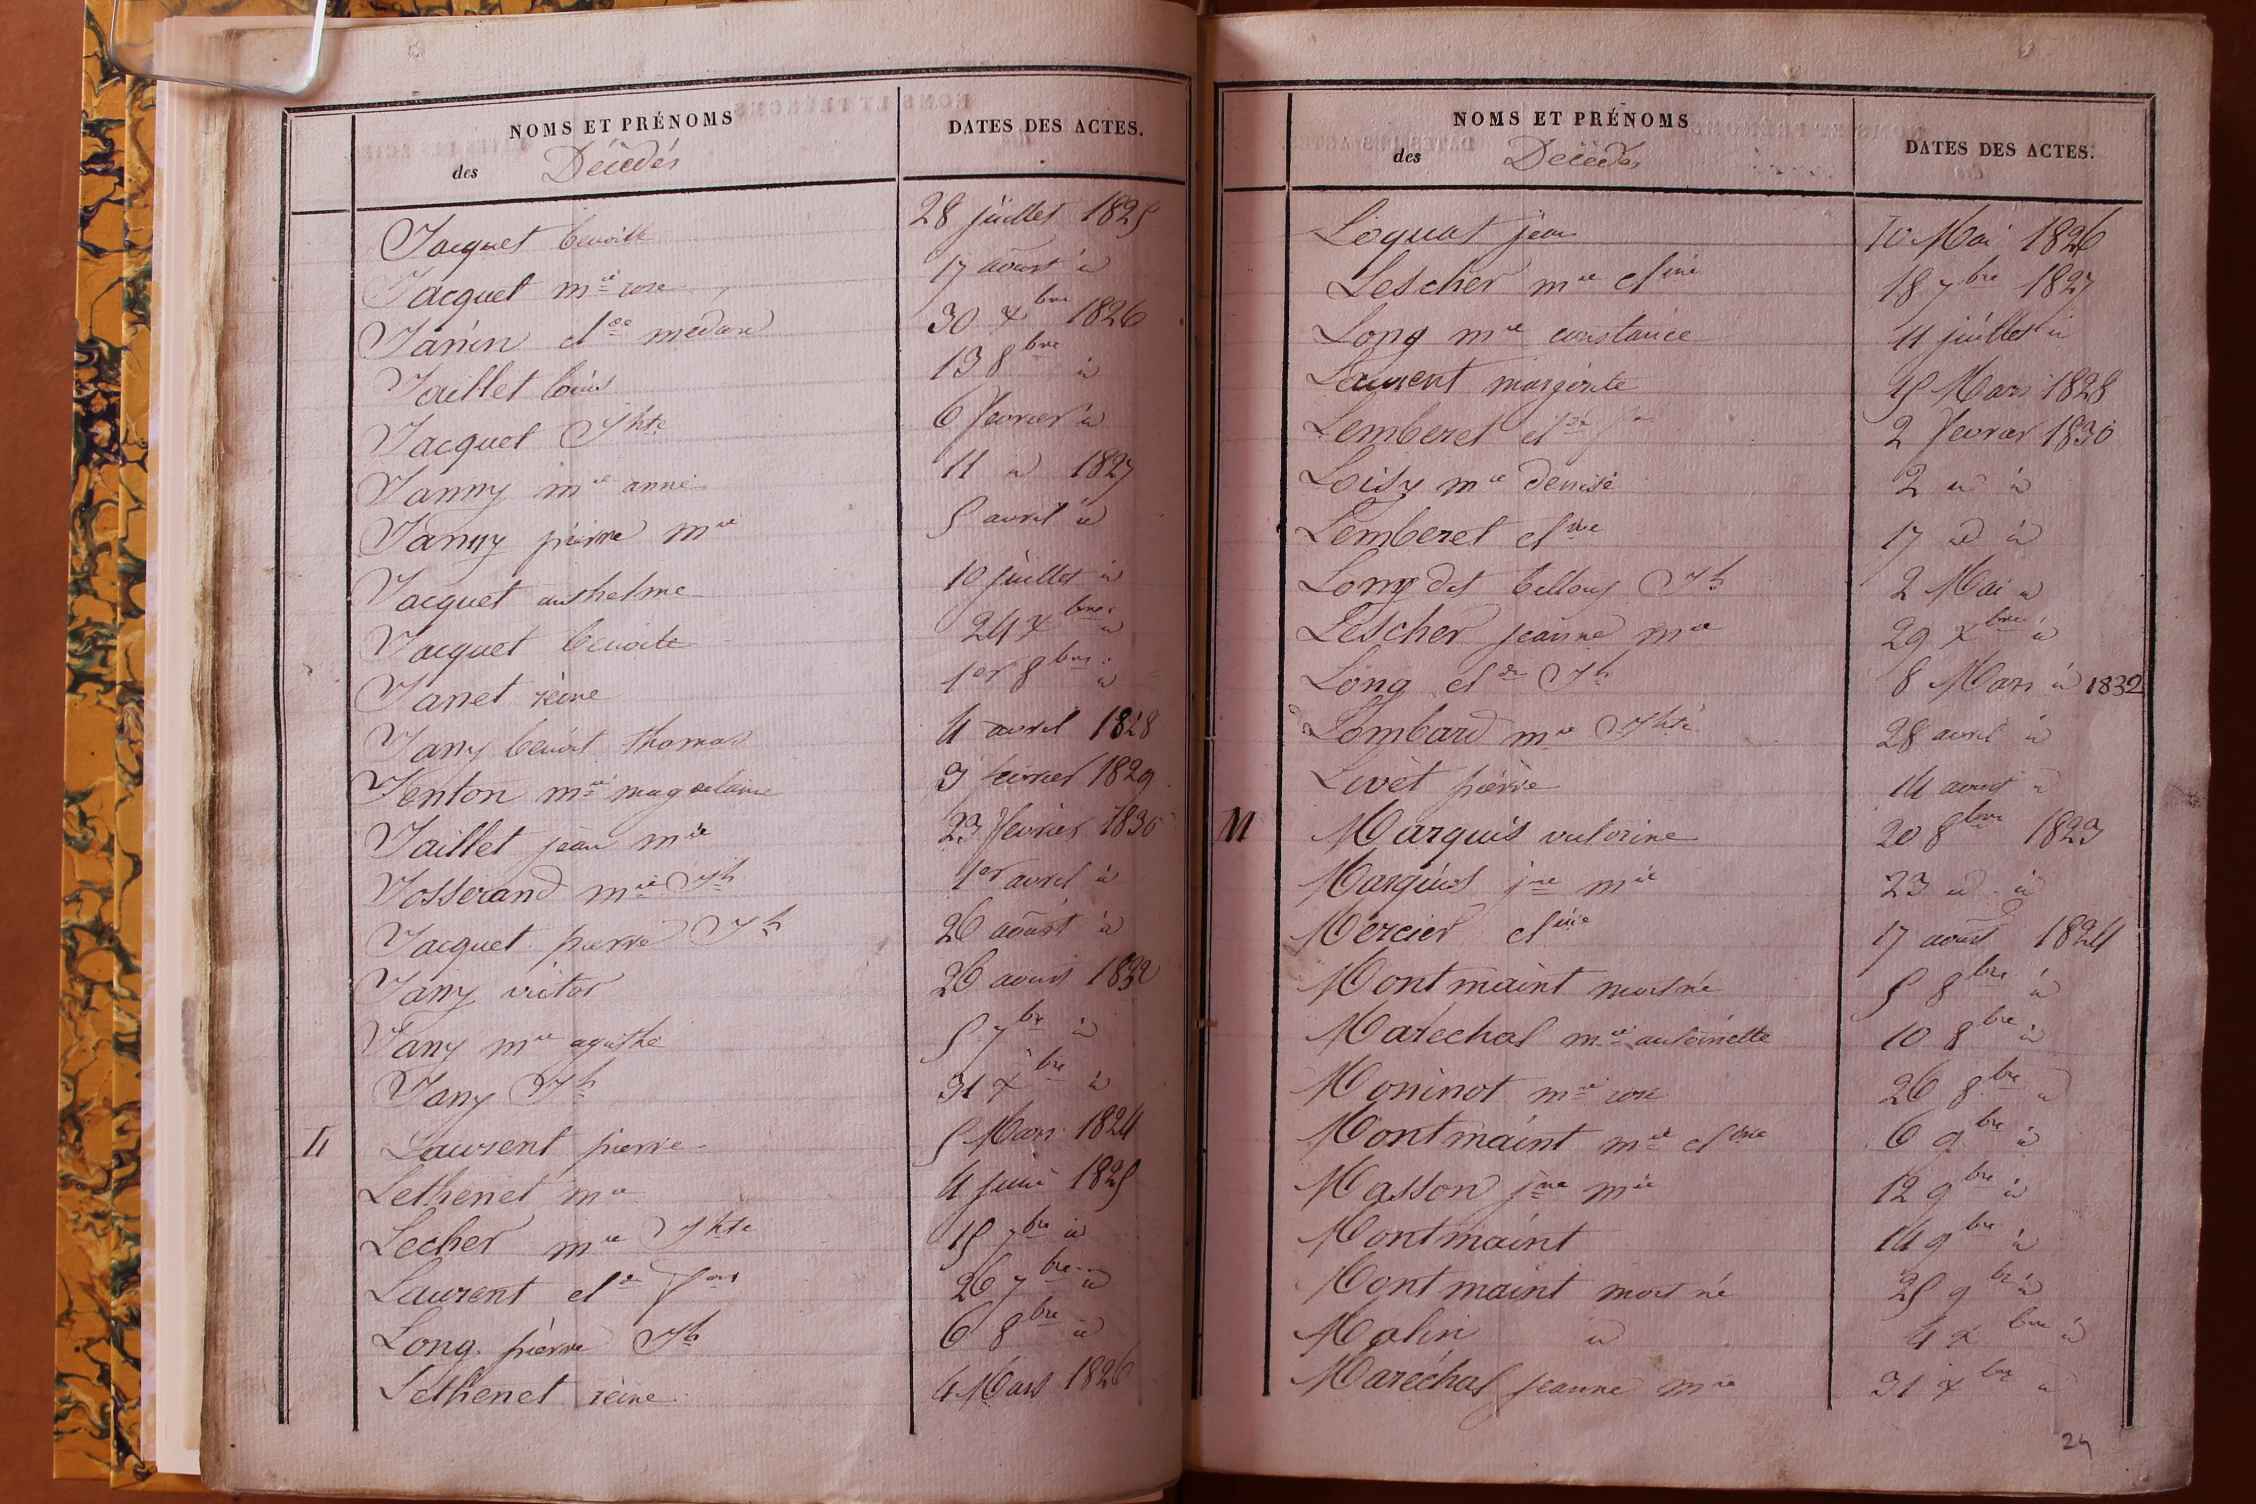 NOMS ET PRÉNOMS
des Décédés
DATES DES ACTES.
Jacquet benoite 28 juillet 1825
Jacquet mie rose 17 aoust id
Janin clde medard 30 xbre 1826
Jaillet louis 13 8bre id
Jacquet Jhte 6 fevrier id
Janny mie anne 11 id 1827
Janny pierre mie 5 avril id
Jacquet anthelme 10 juillet id
Jacquet benoite 24 xbre id
Janet reine 1er 8bre id
Jany benoit thomas 4 avril 1828
Jenton mie magdelaine 3 fevrier 1829
Jaillet jean mie 23 fevrier 1830
Josserand mie Jh 1er avril id
Jacquet pierre Jh 26 aoust id
Jany victor 26 aoust 1832
Jany mie agathe 5 7bre id
Jany Jh 31 xbre id
L Laurent pierre 5 Mars 1824
Lethenet mie 4 juin 1825
Lecher mie Jhte 15 7bre id
Laurent clde fois 26 7bre id
Long pierre Jh 6 8bre id
Lethenet reine 4 Mars 1826
NOMS ET PRÉNOMS
des Décédés
DATES DES ACTES.
Loquat jean 10 Mai 1826
Lescher mie cline 18 7bre 1827
Long mie constance 11 juillet id
Laurent margerite 15 Mars 1828
Lemberet clde 2 fevrier 1830
Loisy mie denise 2 id id
Lemberet cline 17 id id
Long dit Jh 2 Mai id
Lescher jeanne mie 29 xbre id
Long clde Jh 8 Mars id 1832
Lombard mie Jhte 28 avril id
Livet pierre 14 aoust id
M Marquis victorine 20 8bre 1823
Marquis jne mie 23 id id
Mercier cline 17 aoust 1824
Montmaint mort né 5 8bre id
Marechal mie antoinette 10 8bre id
Moninot mie rose 26 8bre id
Montmaint mie cline 6 9bre id
Masson jne mie 12 9bre id
Montmaint 14 9bre id
Montmaint mort né 25 9bre id
Molin id 4 xbre id
Maréchal jeanne mie 31 xbre id
24